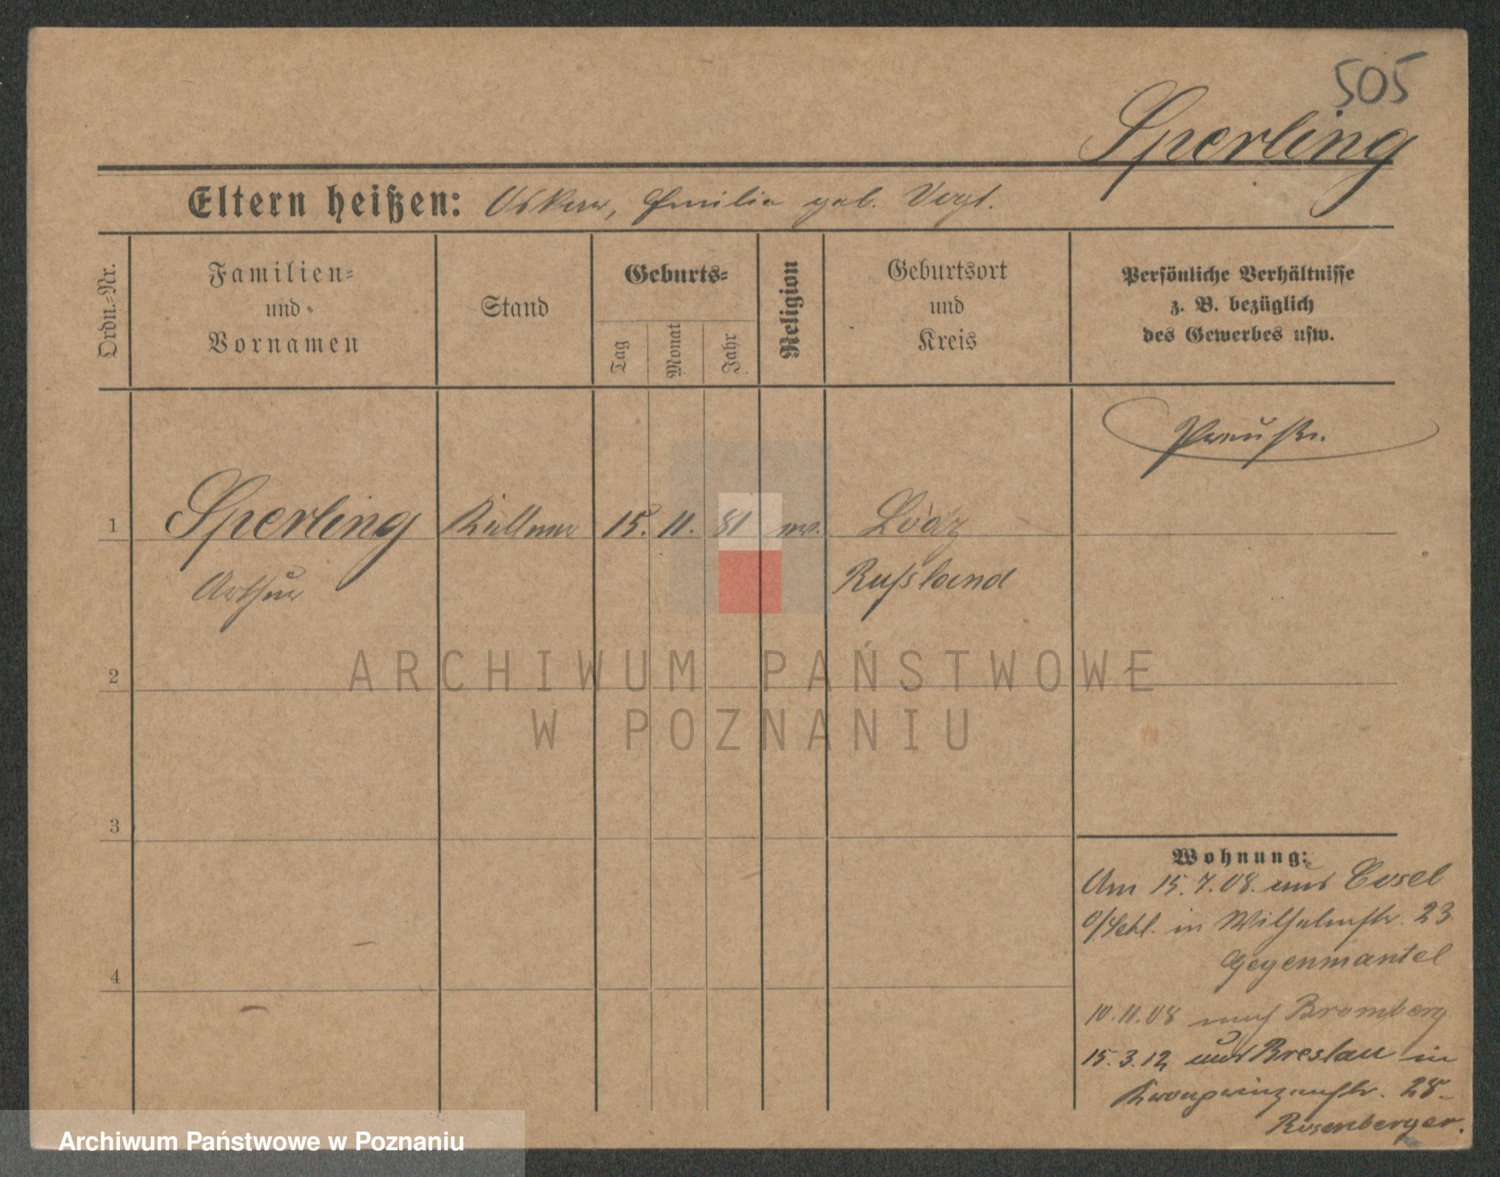 505
Sperling
Eltern heißen: Oskar, Emilie geb. Vogt.
Ordn.-Nr.
Familien-
und
Vornamen
Stand
Geburts-
Tag
Monat
Jahr
Religion
Geburtsort
und
Kreis
Persönliche Verhältnisse
z. B. bezüglich
des Gewerbes usw.
Preuße.
1 Sperling Kellner 15. 11. 81 Lódz
Arthur Russland
2
ARCHIWUM PAŃSTWOWE
W POZNANIU
3
4
Wohnung:
Am 15.7.08. aus Cosel
O/Schl. in Wilhelmstr. 23
Gegenmantel
10.11.08 nach Bromberg
15.3.12 aus Breslau in
Kronprinzenstr. 28
Rosenberger.
Archiwum Państwowe w Poznaniu